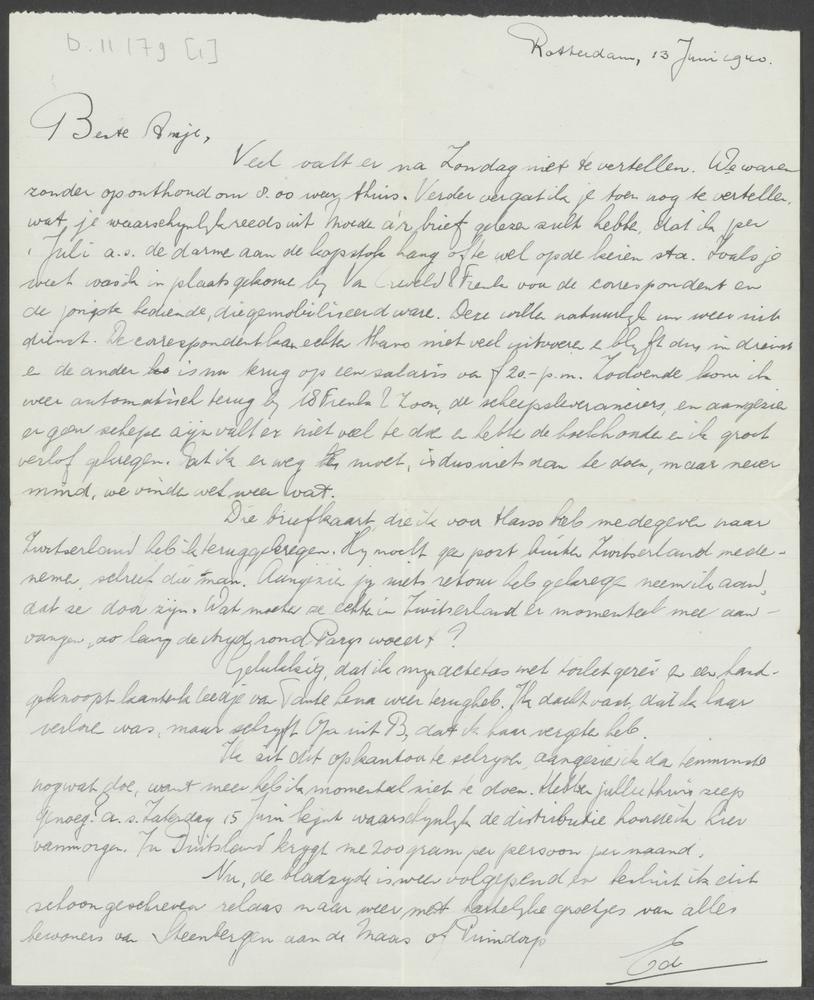 D.11/79 [1]
Rotterdam, 13 Juni 1940.
Beste Amje,
Veel valt er na Zondag niet te vertellen. We waren
zonder oponthoud om 8.00 weer thuis. Verder vergat ik je toen nog te vertellen,
wat je waarschynlyk reeds uit Moeders brief gelezen zult hebben, dat ik per
1 Juli a.s. de darme aan de kapstok hang ofte wel op de keien sta. Zoals je
weet was ik in plaats gekome by Van & Frenk voor de correspondent en
de jongste bediende, die gemobiliseerd ware. Deze wille natuurlyk nu weer uit
dienst. De correspondent kan echter thans niet veel uitvoeren en blyft dus in dienst
en de ander is nu terug op een salaris van f 20.- p.m. Zodoende kom ik
weer automatisch terug by Frenk & Zoon, de scheepsleveranciers, en aangezien
er geen schepe zyn valt er niet veel te doe en hebbe de boekhouder en ik groot
verlof gekregen. Dat ik er weg moet, is dus niets aan te doen, maar never
mind, we vinde wel weer wat.
Die briefkaart, die ik voor Hans heb medegeven naar
Zwitserland heb ik teruggekregen. Hy mocht gee post buiten Zwitserland mede-
neme, schreef die man. Aangezien jy niets retour heb gekregen neem ik aan,
dat ze door zyn. Wat moete ze echter in Zwitserland er momenteel mee aan-
vangen, zo lang de stryd rond Parys woedt?
Gelukkig, dat ik myn actetas met toiletgerei en een hand-
geknoopt kante kleedje van Tante Lena weer terug heb. Ik dacht vast, dat ik haar
verlore was, maar schryft Opa uit B, dat ik haar vergete heb.
Ik zit dit op kantoor te schryven, aangezien ik dan tenminste
nog wat doe, want meer heb ik momenteel niet te doen. Hebben jullie thuis zeep
genoeg? a.s. Zaterdag 15 Juni begint waarschynlyk de distributie hoorde ik hier
vanmorgen. In Duitsland krygt me 200 gram per persoon per maand.
Nu, de bladzyde is weer volgepend en besluit ik dit
schoon geschreven relaas maar weer met hartelyke groetjes van alles
bewoners van Steenbergen aan de Maas of Puindorp
Ed